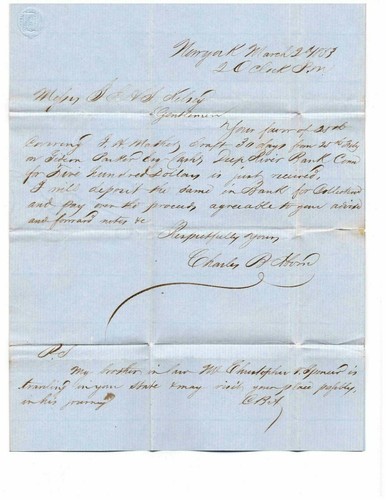 New York March 2d 1853
2 O Clock P.M.
Messrs
Gentlemen
Your favor of 28th
Covering draft 30 days from 25th Feby
on Deep River Bank Conn
for Five hundred Dollars is just received
I will deposit the same in Bank for Collection
and pay over the proceeds agreeable to your advice
and forward notes &c
Respectfully Yours
Charles B
P.S
My brother in law Mr Christopher S. is
traveling in your State & may visit your place possibly
in his journey